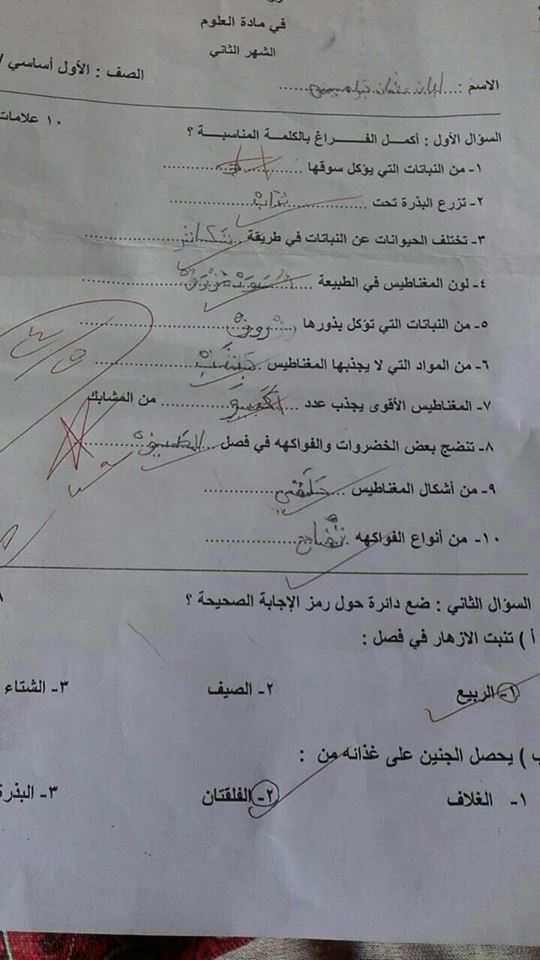 في مادة العلوم
الشهر الثاني
الصف : الأول أساسي /
الاسم :
١٠ علامات
السؤال الأول : أكمل الفراغ بالكلمة المناسبة ؟
١- من النباتات التي يؤكل سوقها
٢- تزرع البذرة تحت
٣- تختلف الحيوانات عن النباتات في طريقة تكاثر
٤- لون المغناطيس في الطبيعة أسود
٥- من النباتات التي تؤكل بذورها
٦- من المواد التي لا يجذبها المغناطيس خشب
٧- المغناطيس الأقوى يجذب عدد من المشابك
٨- تنضج بعض الخضروات والفواكهه في فصل الصيف
٩- من أشكال المغناطيس حلقي
١٠- من أنواع الفواكهه تفاح
السؤال الثاني : ضع دائرة حول رمز الإجابة الصحيحة ؟
أ ) تنبت الازهار في فصل :
١- الربيع ٢- الصيف ٣- الشتاء
ب ) يحصل الجنين على غذائه من :
١- الغلاف ٢- الفلقتان ٣- البذرة